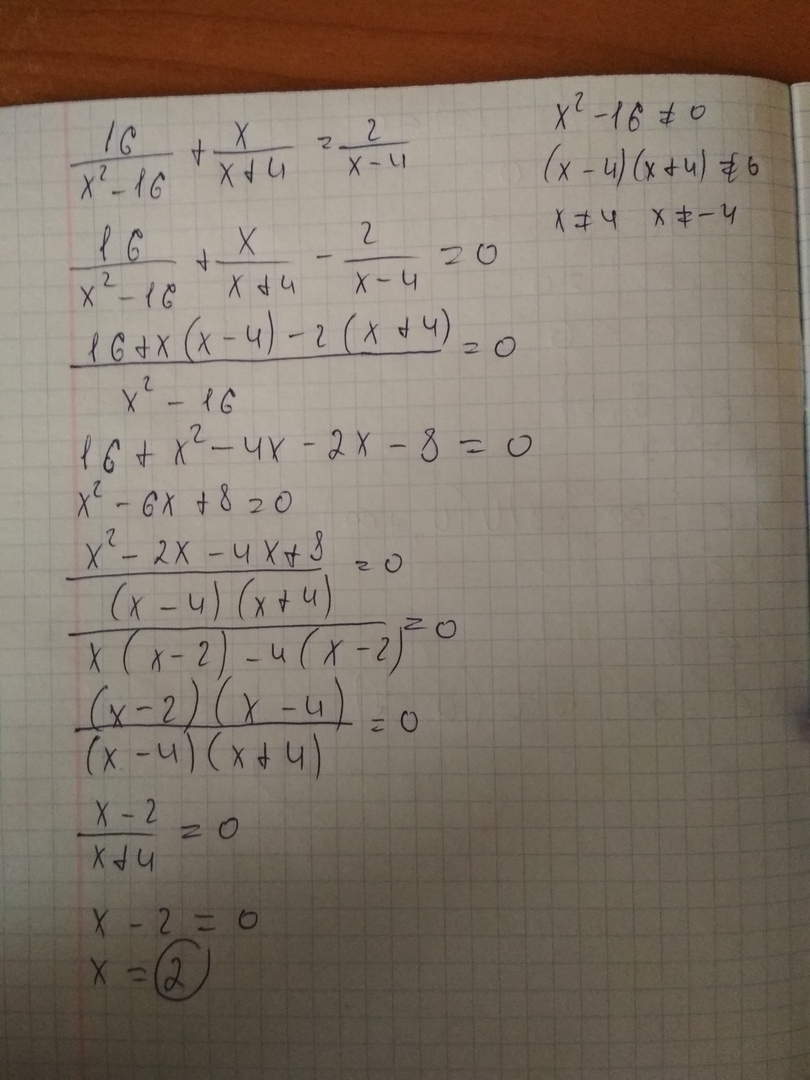 16/(x²-16) + x/(x+4) = 2/(x-4)
x² - 16 ≠ 0
(x - 4)(x + 4) ≠ 0
x ≠ 4 x ≠ -4
16/(x² - 16) + x/(x + 4) - 2/(x - 4) = 0
(16 + x(x - 4) - 2(x + 4))/(x² - 16) = 0
16 + x² - 4x - 2x - 8 = 0
x² - 6x + 8 = 0
x² - 2x - 4x + 8 = 0
(x - 4)(x + 4)
x(x - 2) - 4(x - 2) = 0
((x - 2)(x - 4))/((x - 4)(x + 4)) = 0
(x - 2)/(x + 4) = 0
x - 2 = 0
x = 2